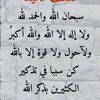 سبحان الله والحمد لله
ولا إله إلا الله والله أكبر
ولا حول ولا قوة إلا بالله
كن سببا في تذكير
الكثيرين بذكر الله